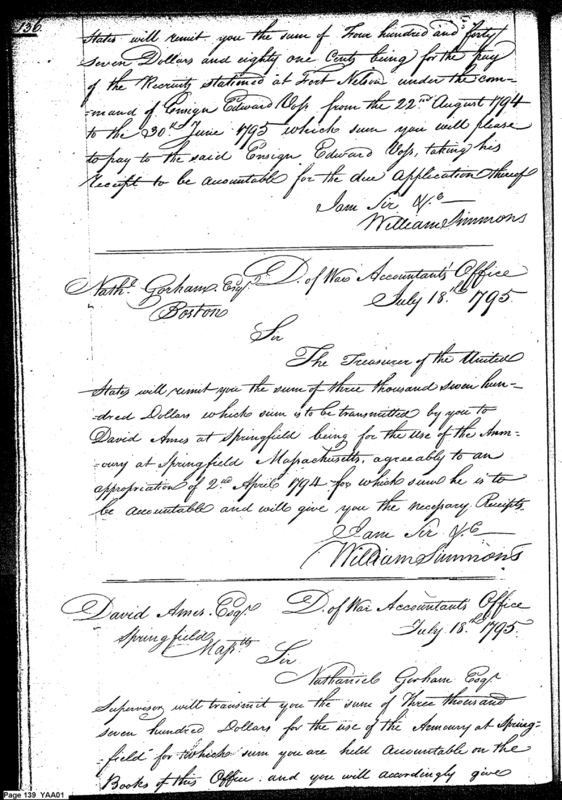 136
States will remit you the sum of Four hundred and forty
seven Dollars and eighty one Cents being for the pay
of the Recruits stationed at Fort Nelson under the com-
-mand of Ensign Edward Voss from the 22nd August 1794
to the 30th June 1795 which sum you will please
to pay to the said Ensign Edward Voss, taking his
Receipt to be accountable for the due Application thereof
I am Sir &c
William Simmons
Nathl. Gorham Esqr. D. of War Accountants Office
Boston July 18th 1795.
Sir
The Treasurer of the United
States will remit you the sum of three thousand seven hun-
-dred Dollars which sum is to be transmitted by you to
David Ames at Springfield being for the Use of the Arm-
-oury at Springfield Massachusetts, agreeably to an
appropriation of 2nd April 1794 for which sum he is to
be accountable and will give you the necessary Receipts.
I am Sir &c
William Simmons
David Ames Esqr. D. of War Accountants Office
Springfield July 18th 1795.
Massts
Sir
Nathaniel Gorham Esqr
Supervisor will transmit you the sum of Three thousand
seven hundred Dollars for the use of the Armoury at Spring-
-field for which sum you are held Accountable on the
Books of this Office and you will accordingly give
Page 139 YAA01